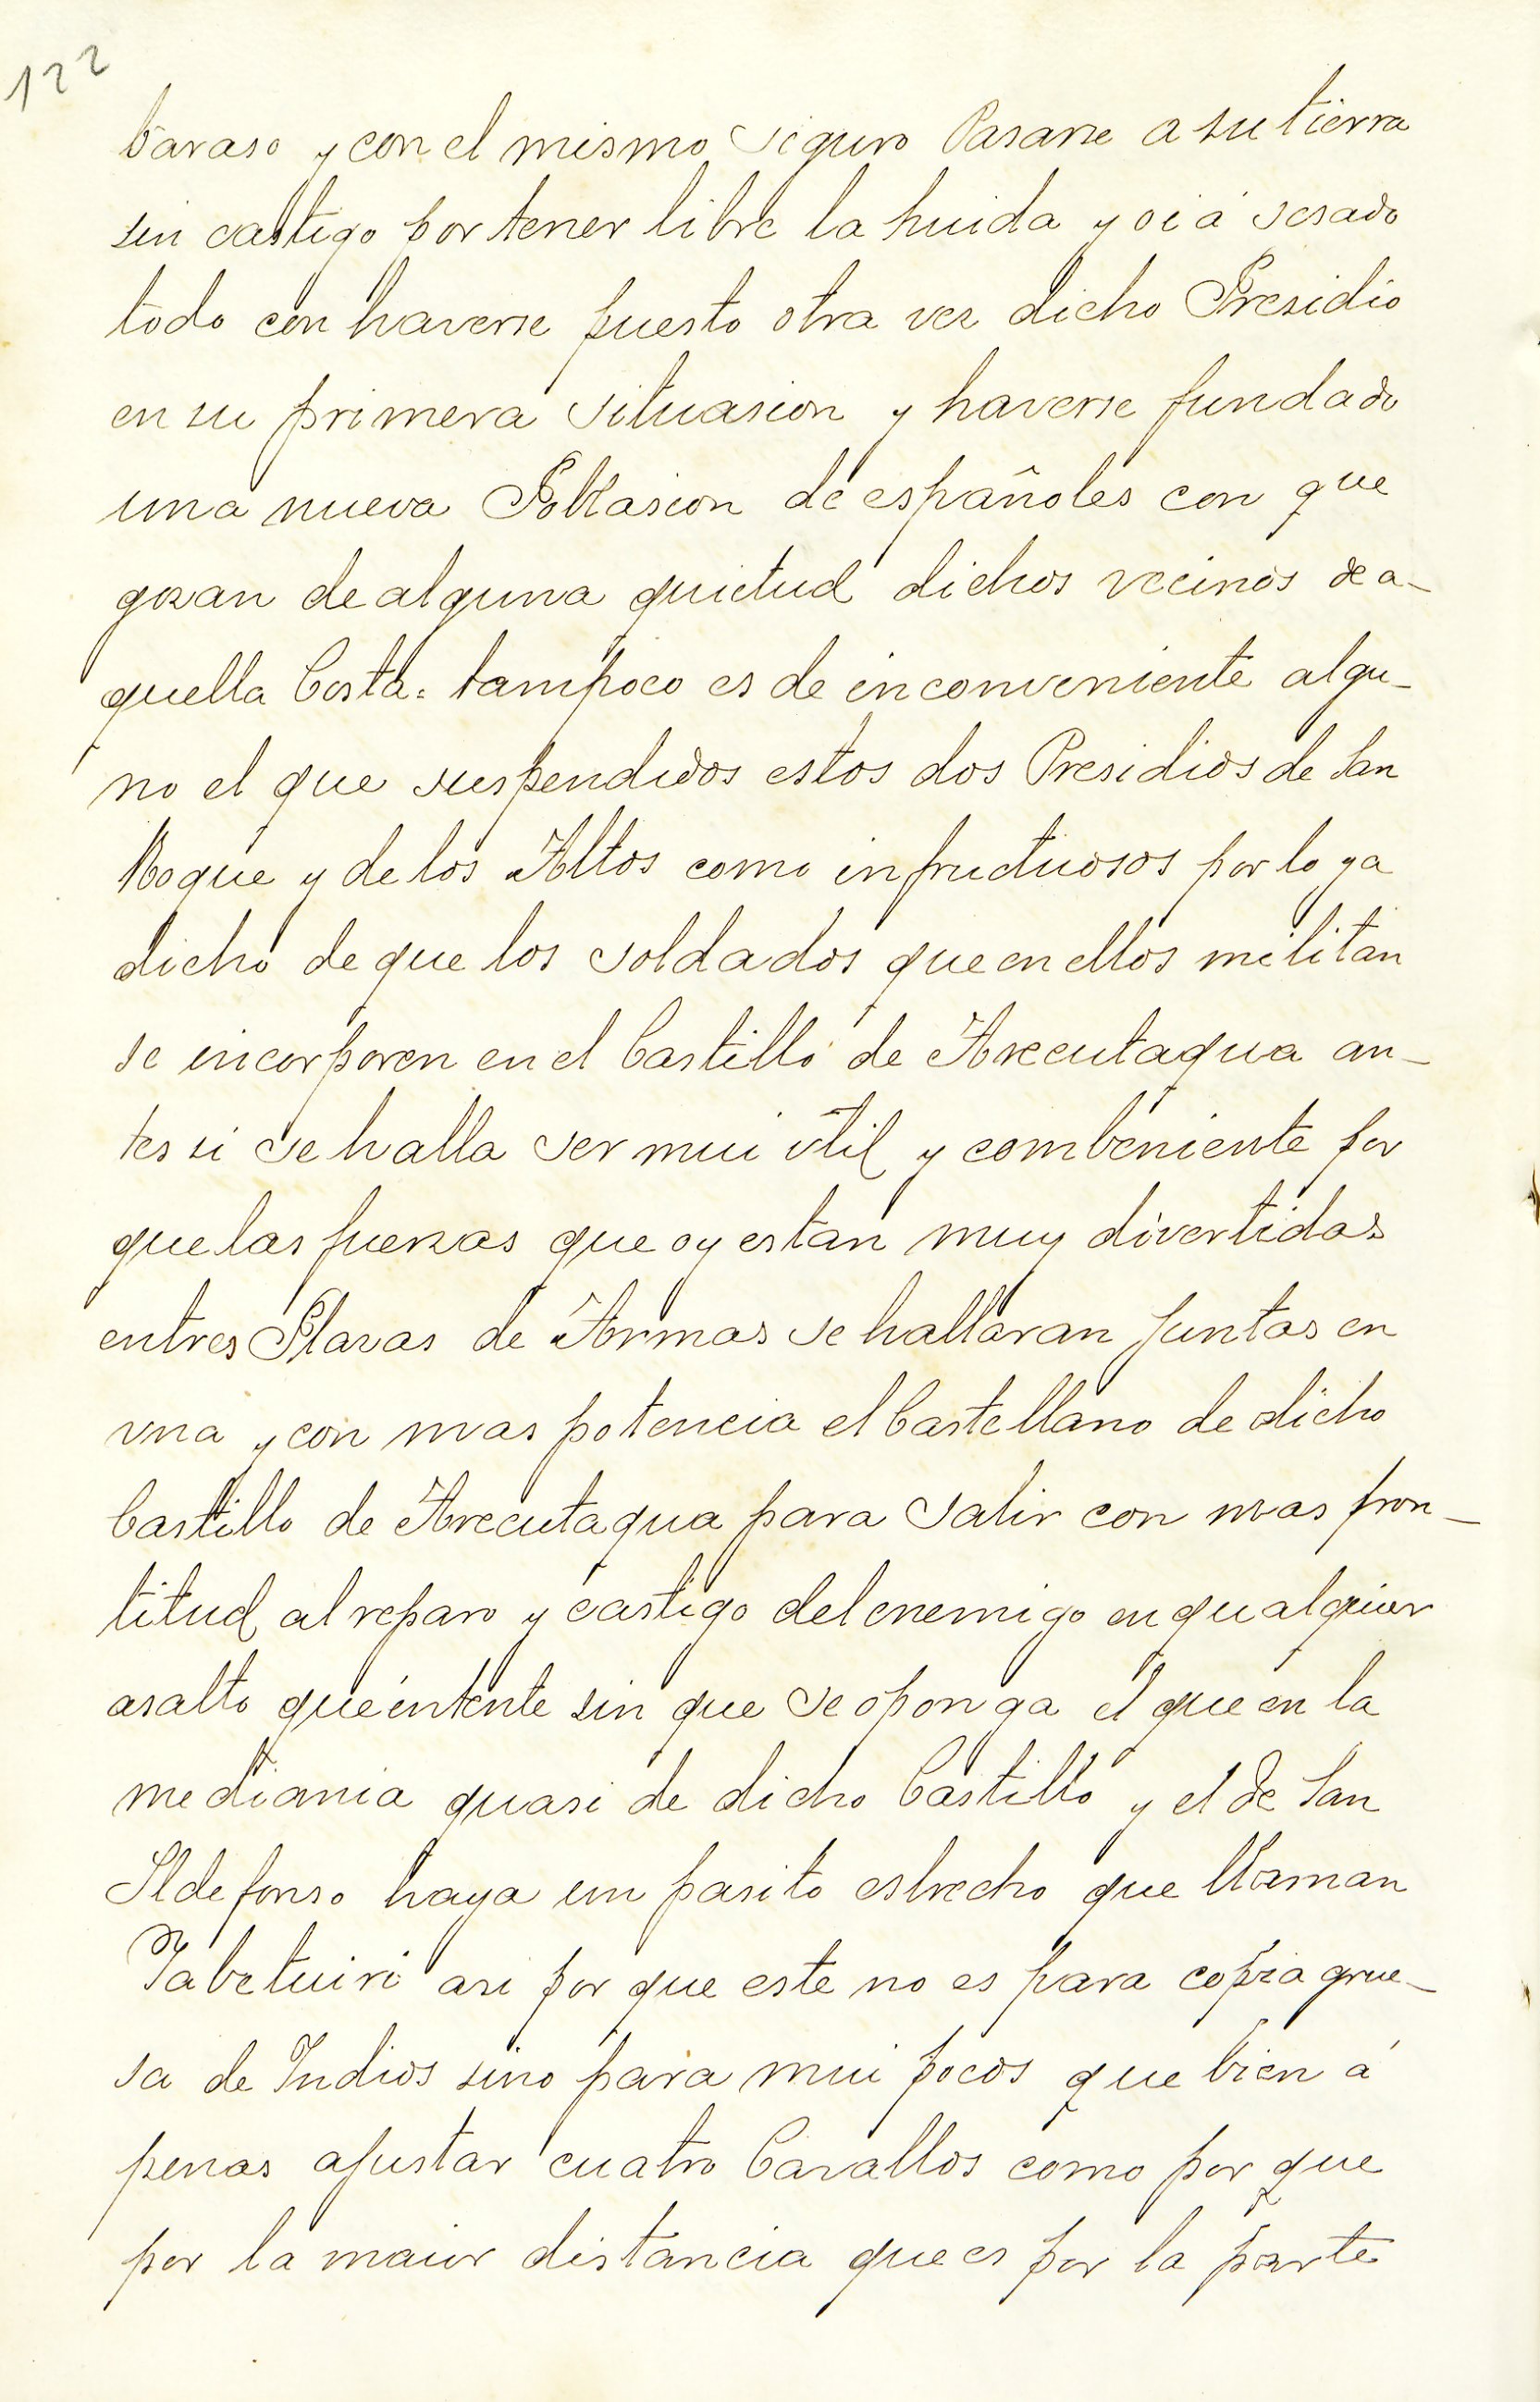 122
baraso y con el mismo seguro Pasarse a su tierra
sin castigo por tener libre la huida y oi á sesado
todo con haverse puesto otra vez dicho Presidio
en su primera situasion y haverse fundado
una nueva Poblasion de españoles con que
gozan de alguna quietud dichos vecinos de a-
quella Costa. tampoco es de inconveniente algu-
no el que suspendidos estos dos Presidios de San
Roque y de los Altos como infructuosos por lo ya
dicho de que los soldados que en ellos militan
se incorporen en el Castillo de Arecutagua an-
tes si se halla ser mui vtil y combeniente por
que las fuerzas que oy estan muy divertidas
en tres Plazas de Armas se hallaran Juntas en
vna y con mas potencia el Castellano de dicho
Castillo de Arecutagua para salir con mas pron-
titud al reparo y castigo del enemigo en qualquier
asalto que intente sin que se oponga el que en la
mediania quasi de dicho Castillo y el de San
Ildefonso haya un pasito estrecho que llaman
Tabetuiri asi por que este no es para copia grue-
sa de Indios sino para mui pocos que bien á
penas ajustar cuatro Cavallos como por que
por la maior distancia que es por la parte